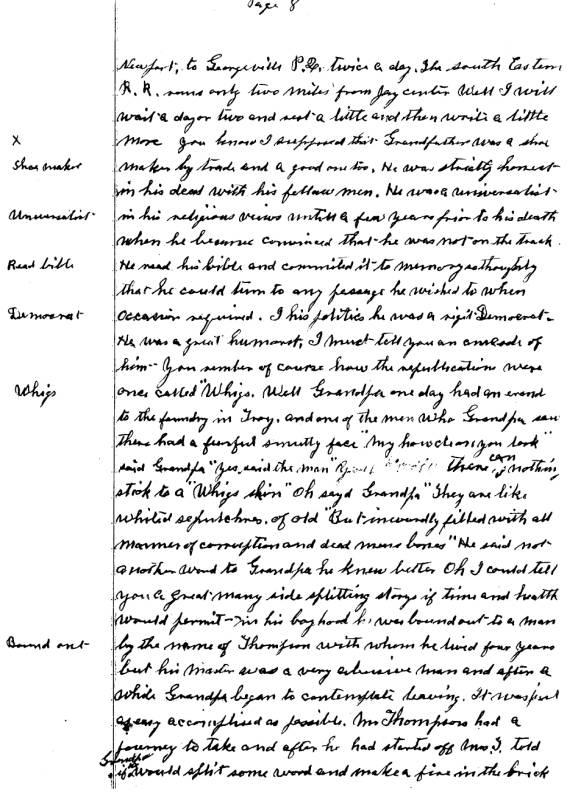 Page 8
Newport, to Georgeville P.Q. twice a day. The south Eastern
R. R. runs only two miles from Jay center Well I will
wait a day or two and rest a little and then write a little
X
more you know I supposed that Grandfather was a shoe
Shoe maker
maker by trade and a good one too. He was strictly honest
in his deal with his fellow men. He was a universalist
Universalist
in his religious views untill a few years prior to his death
when he became convinced that he was not on the track.
Read bible
He read his bible and commited it to memory so thoughly
that he could turn to any passage he wished to when
Democrat
occasion required. I his politics he was a rigit Democrat-
He was a great humorist, I must tell you an
him- You of course how the were
Whigs
once called "Whigs. Well Grandpa one day had an erend
to the foundry in Troy. and one of the men who Grandpa saw
there had a fearful smutty face "My how clean you look"
said Grandpa "yes, said the man" there can nothing
stick to a "Whigs skin" Oh says Grandpa "They are like
whitid sepulchres. of old "But inwardly filled with all
manner of corruption and dead mens bones" He said not
another word to Grandpa he knew better Oh I could tell
you a great many side splitting storys if time and health
would permit- in his boyhood he was bound out to a man
Bound out
by the name of Thompson with whom he lived four years
but his Master was a very abusive man and after a
while Grandpa began to contemplate leaving. It was just
as easy accomplised as possible. Mr Thompson had a
journey to take and after he had started off Mrs. T. told
would split some wood and make a fire in the brick